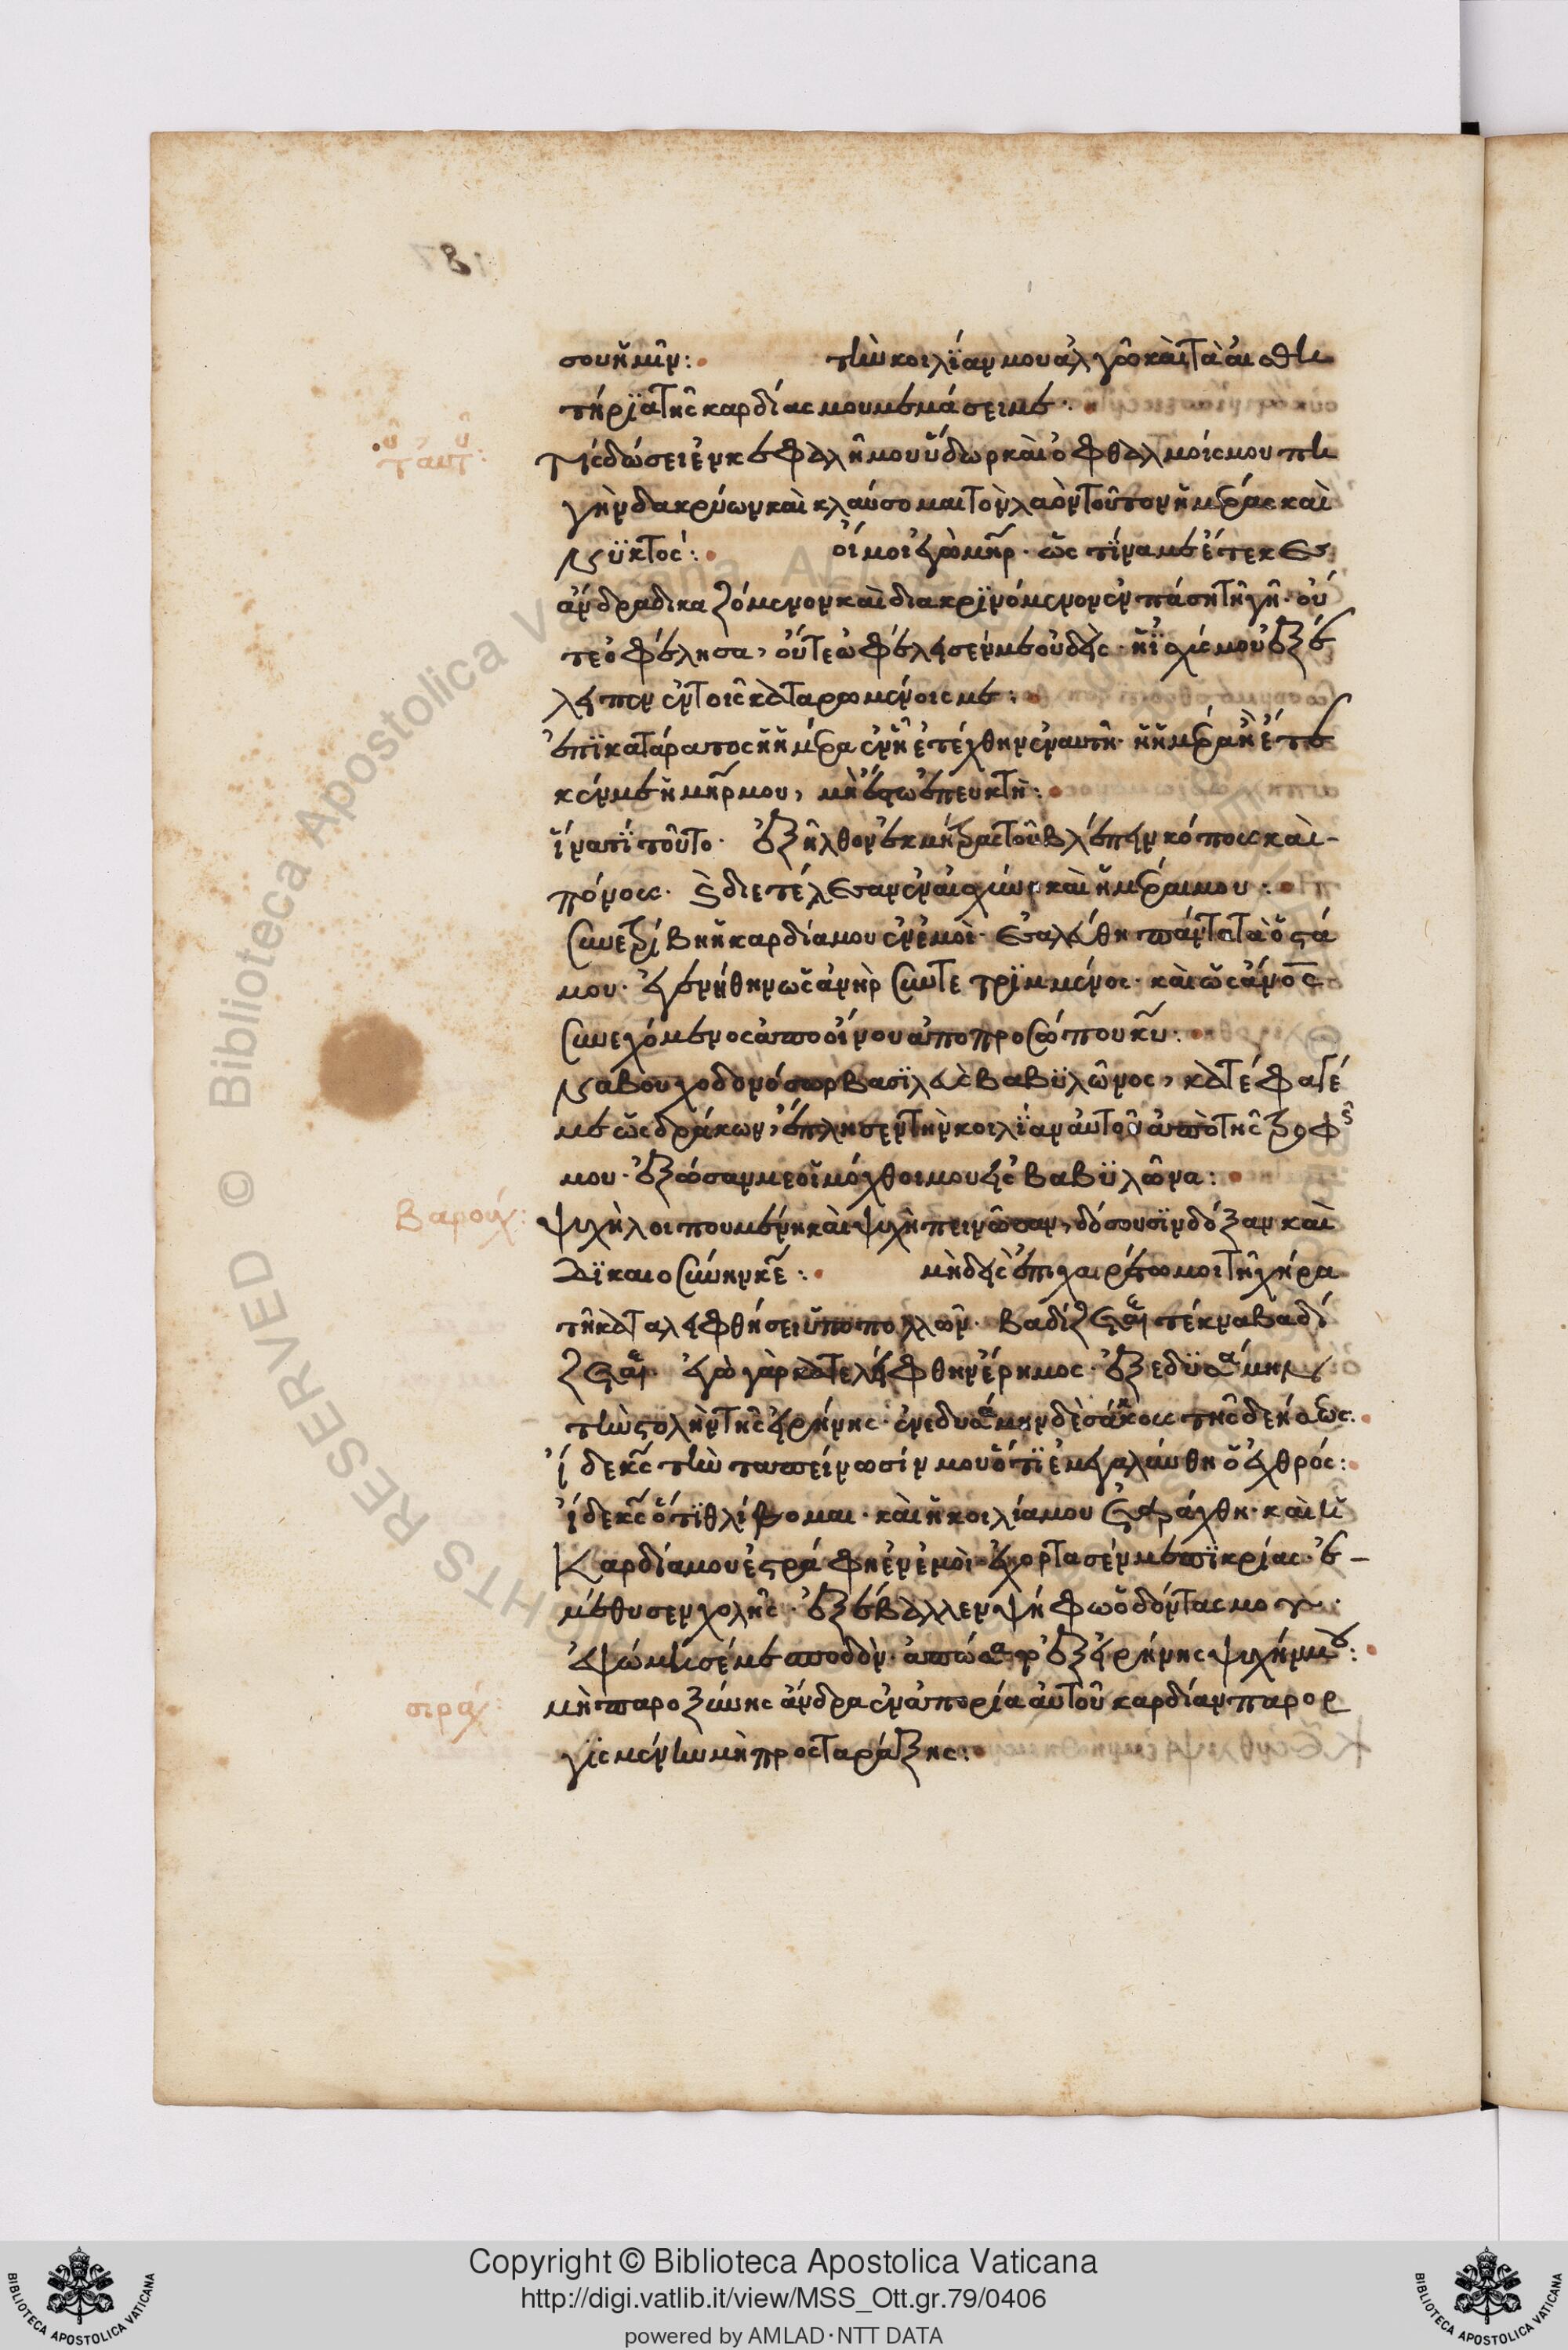 σου ἡμῖν: τὴν κοιλίαν μου ἀλγῶ καὶ τὰ αἰσθη
τήρια τῆς καρδίας μου μαιμάσει με·
τοῦ αὐτοῦ:
τίς δώσει ἐν κεφαλῆ μου ὕδωρ καὶ ὀφθαλμοῖς μου πη
γὴν δακρύων καὶ κλαύσομαι τὸν λαὸν τοῦτον ἡμέρας καὶ
νϋκτός: οἴμοι ἐγὼ μῆρ· ὡς τίνα με ἔτεκες
ἄνδρα δικαζόμενον καὶ διακρϊνόμενον ἐν πάση τῆ γῆ· οὔ
τε ὀφέλησα, οὔτε ὠφέλησέν με οὐδείς· ἡ ἰσχύς μου ἐξέ
λειπεν ἐν τοῖς καταρωμένοις με:
ἐπϊκατάρατος ἡ ἡμέρα ἐν ἧ ἐτέχθην ἐν αυτῆ· ἡ ἡμέρα ἐν ἧ ἔτε
κέν με ἡ μῆρ μου, μὴ ἔστω ἐπευκτὴ:
ἵνα τί τοῦτο· ἐξῆλθον ἐκ μήτρας τοῦ βλέπειν κόπους καὶ
πόνους· καὶ διετέλεσαν ἐν αἰσχύνη καὶ ἡμέραι μου:
Συνετρίβη ἡ καρδία μου ἐν ἐμοὶ· ἐσαλεύθη πάντα τὰ ὀστᾶ
μου· ἐγενήθην ὡς ἀνὴρ συντετριμμένος· καὶ ὡς ἄνος
συνεχόμενος ἀπο οἴνου ἀπο προσώπου κυ:
Ναβουχοδονόσωρ βασϊλεὺς βαβϋλῶνος, κατέφαγέ
με ὡς δράκων, ἔπλησεν τὴν κοιλίαν αὐτοῦ ἀπὸ τῆς τρυφῆς
μου· ἐξῶσαν με οἱ μόχθοι μου εἰς βαβϋλῶνα:
βαρούχ:
ψυχὴ λοιπουμένη καὶ ψυχὴ πεινῶσαν, δόσουσϊν δόξαν καὶ
Δϊκαιοσύνην κε: μὴδεὶς ἐπιχαιρέτω μοι τῆ χήρα
τῆ καταλειφθήσει ὑπο πολλῶν· βαδίζεται τέκνα βαδί
ζεται· ἐγὼ γὰρ κατελείφθην ἔρημος· ἐξεδϋσάμην
τὴν στολὴν τῆς εἰρήνης· ἐνεδυσάμην δὲ σάκκους τῆς δεήσεως:
ἴδε κε τὴν ταπείνωσίν μου ὅτϊ ἐμεγαλύνθη ὁ ἐχθρός:
ἴδε κε ὅτϊ θλίβομαι· καὶ ἡ κοιλία μου ἐταράχθη· καὶ ἡ
Καρδία μου ἐστράφη ἐν ἐμοὶ· ἐχόρτασέν με πϊκρίας· ἐ
μέθυσεν χολῆς· ἐξέβαλλεν ψήφω ὀδόντας μου·
ἐψώμησέ με σποδὸν· ἀπώσατο ἐξ εἰρήνης ψυχήν μου:
σιράχ:
μὴ παροξύνης ἄνδρα ἐν ἀπορία αὐτοῦ καρδίαν παρορ
γϊσμένην μὴ προσταράξης:
Copyright © Biblioteca Apostolica Vaticana
http://digi.vatlib.it/view/MSS_Ott.gr.79/0406
powered by AMLAD·NTT DATA